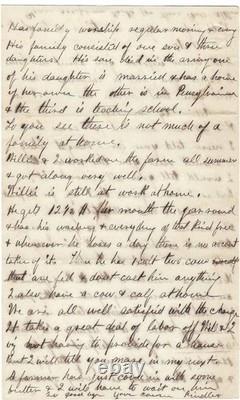 Has family worship regular morning & eveng
His family consisted of one son & three
daughters. His son died in the army one
of his daughter is married & has a home
of her own the other is in Pennsylvania
& the third is teaching school.
So you see there is not much of a
family at home.
Willie & I worked on the farm all summer
& got along very well.
Willie is still at work at home.
He gets 12 per month the year round
& has his washing & everything of that kind free
& whenever he loses a day there is no account
taken of it. he has kept two cows
that are fed & dont cost him anything
I also have a cow & calf at home
We are all well satisfied with the change
It takes a great deal of labor off Will & I
by not having to provide for a
But I will tell you more in my next
A farmer has just come in with some
butter & I will have to wait on him
So send up your cause
© ebay